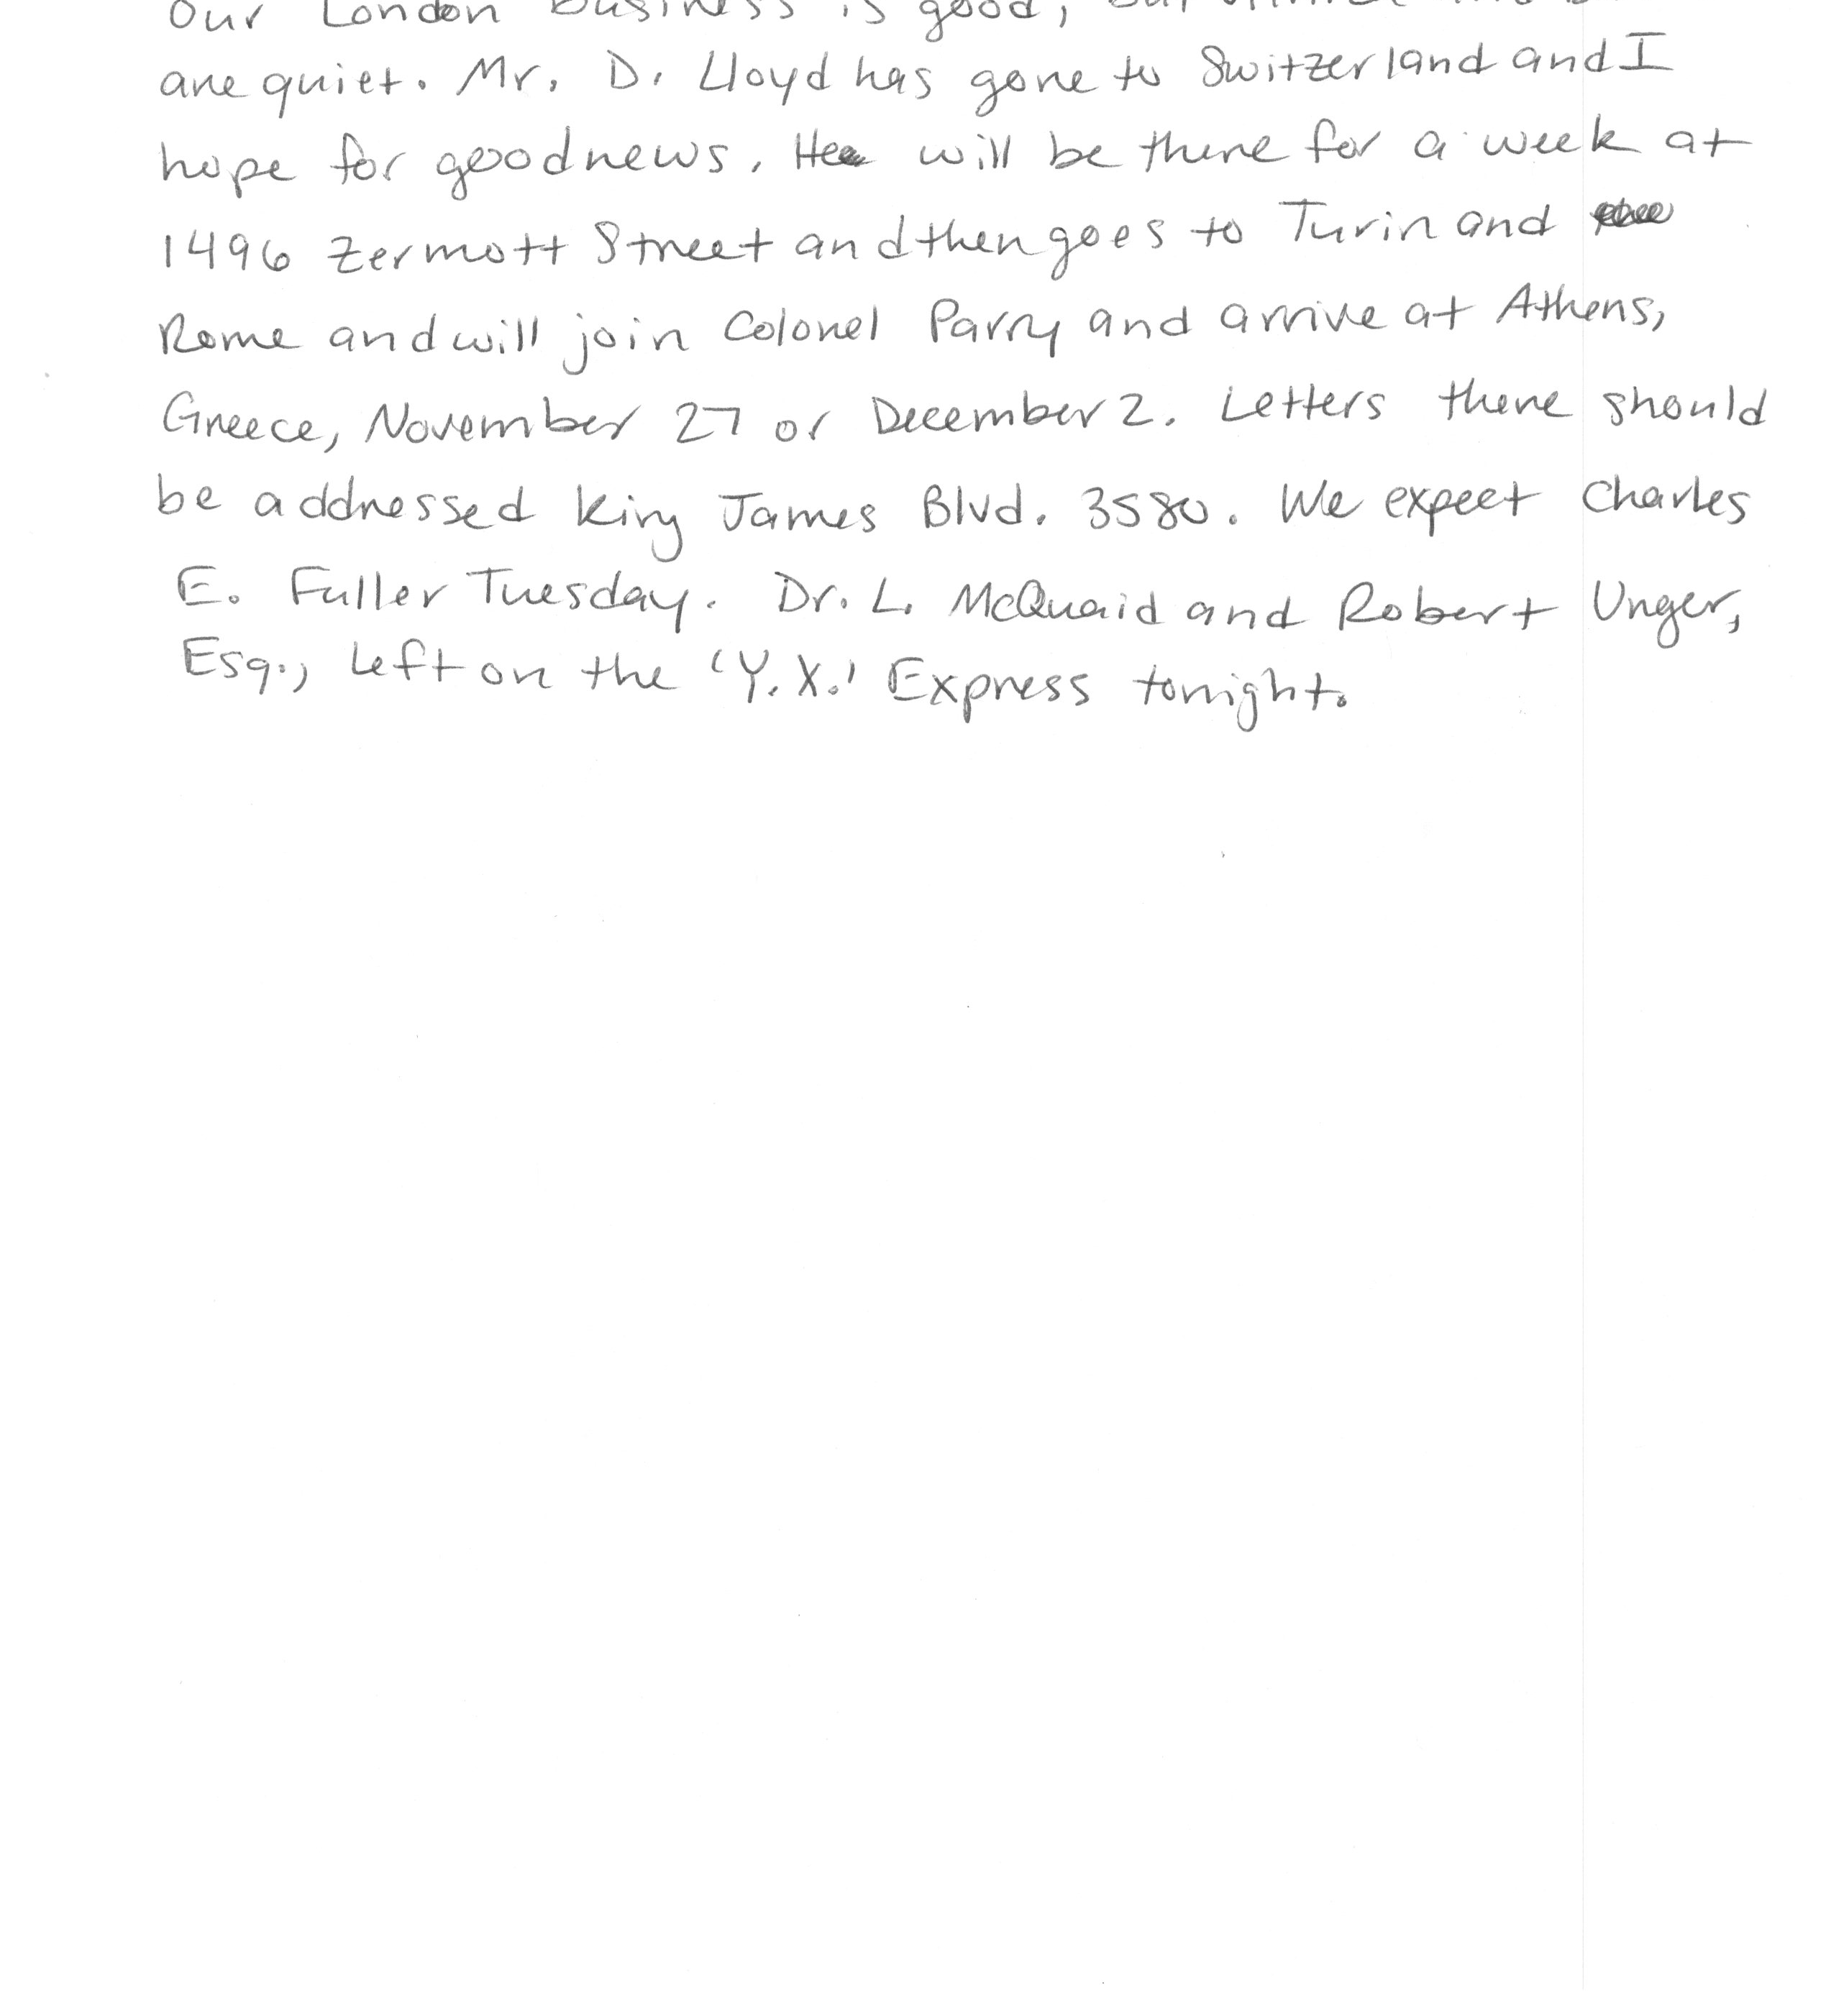 Our London business is good, but
are quiet. Mr. D. Lloyd has gone to Switzerland and I
hope for good news. He will be there for a week at
1496 Zermott Street and then goes to Turin and
Rome and will join Colonel Parry and arrive at Athens,
Greece, November 27 or December 2. Letters there should
be addressed King James Blvd. 3580. We expect Charles
E. Fuller Tuesday. Dr. L. McQuaid and Robert Unger,
Esq., Left on the 'Y.X.' Express tonight.